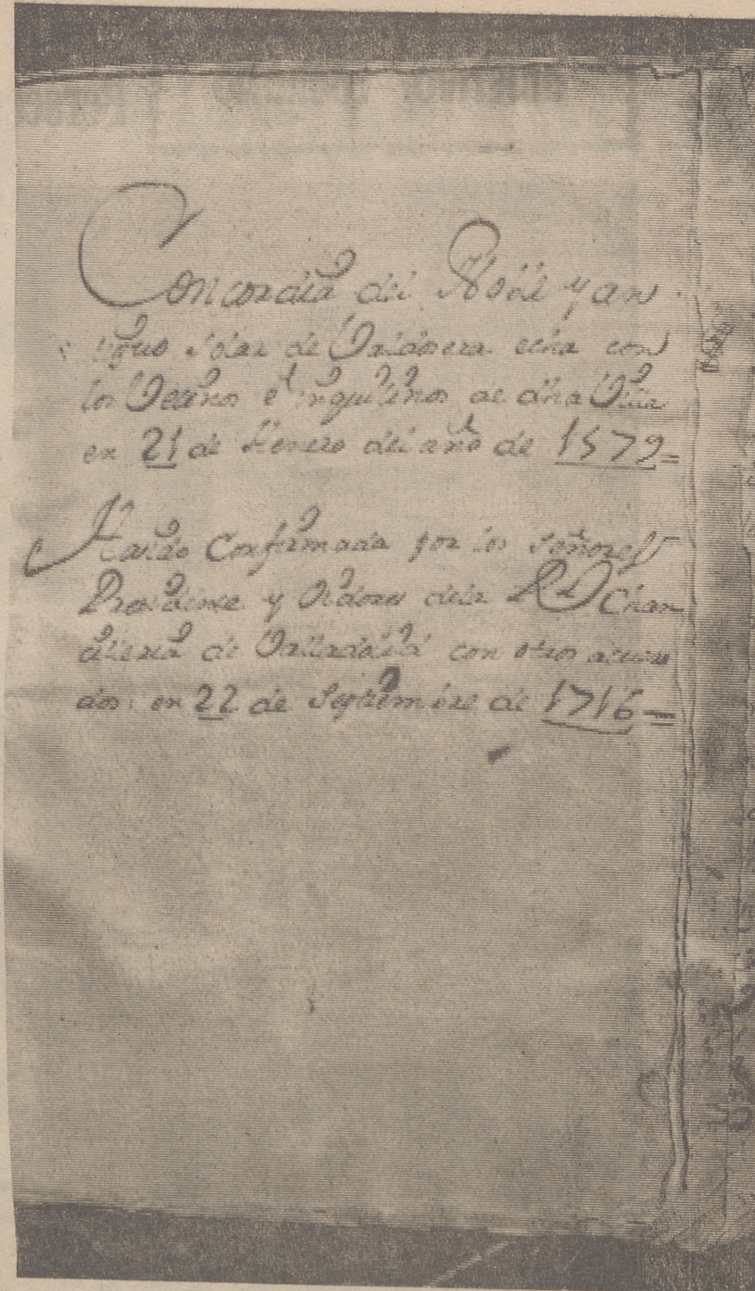 Concordia del Noble y an
tiguo solar de Valdosera echa con
los Vecinos e ynquilinos de dha Villa
en 21 de Henero del año de 1579=
Confirmada por los señores
Presidente y Oidores dela Rl Chan
cilleria de Valladolid con otros acuer
dos en 22 de Septiembre de 1716=